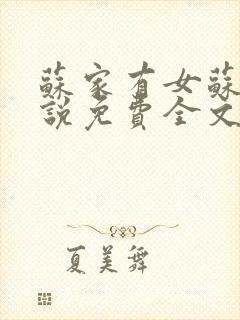 蘇家有女蘇
說免費全文
夏美舞